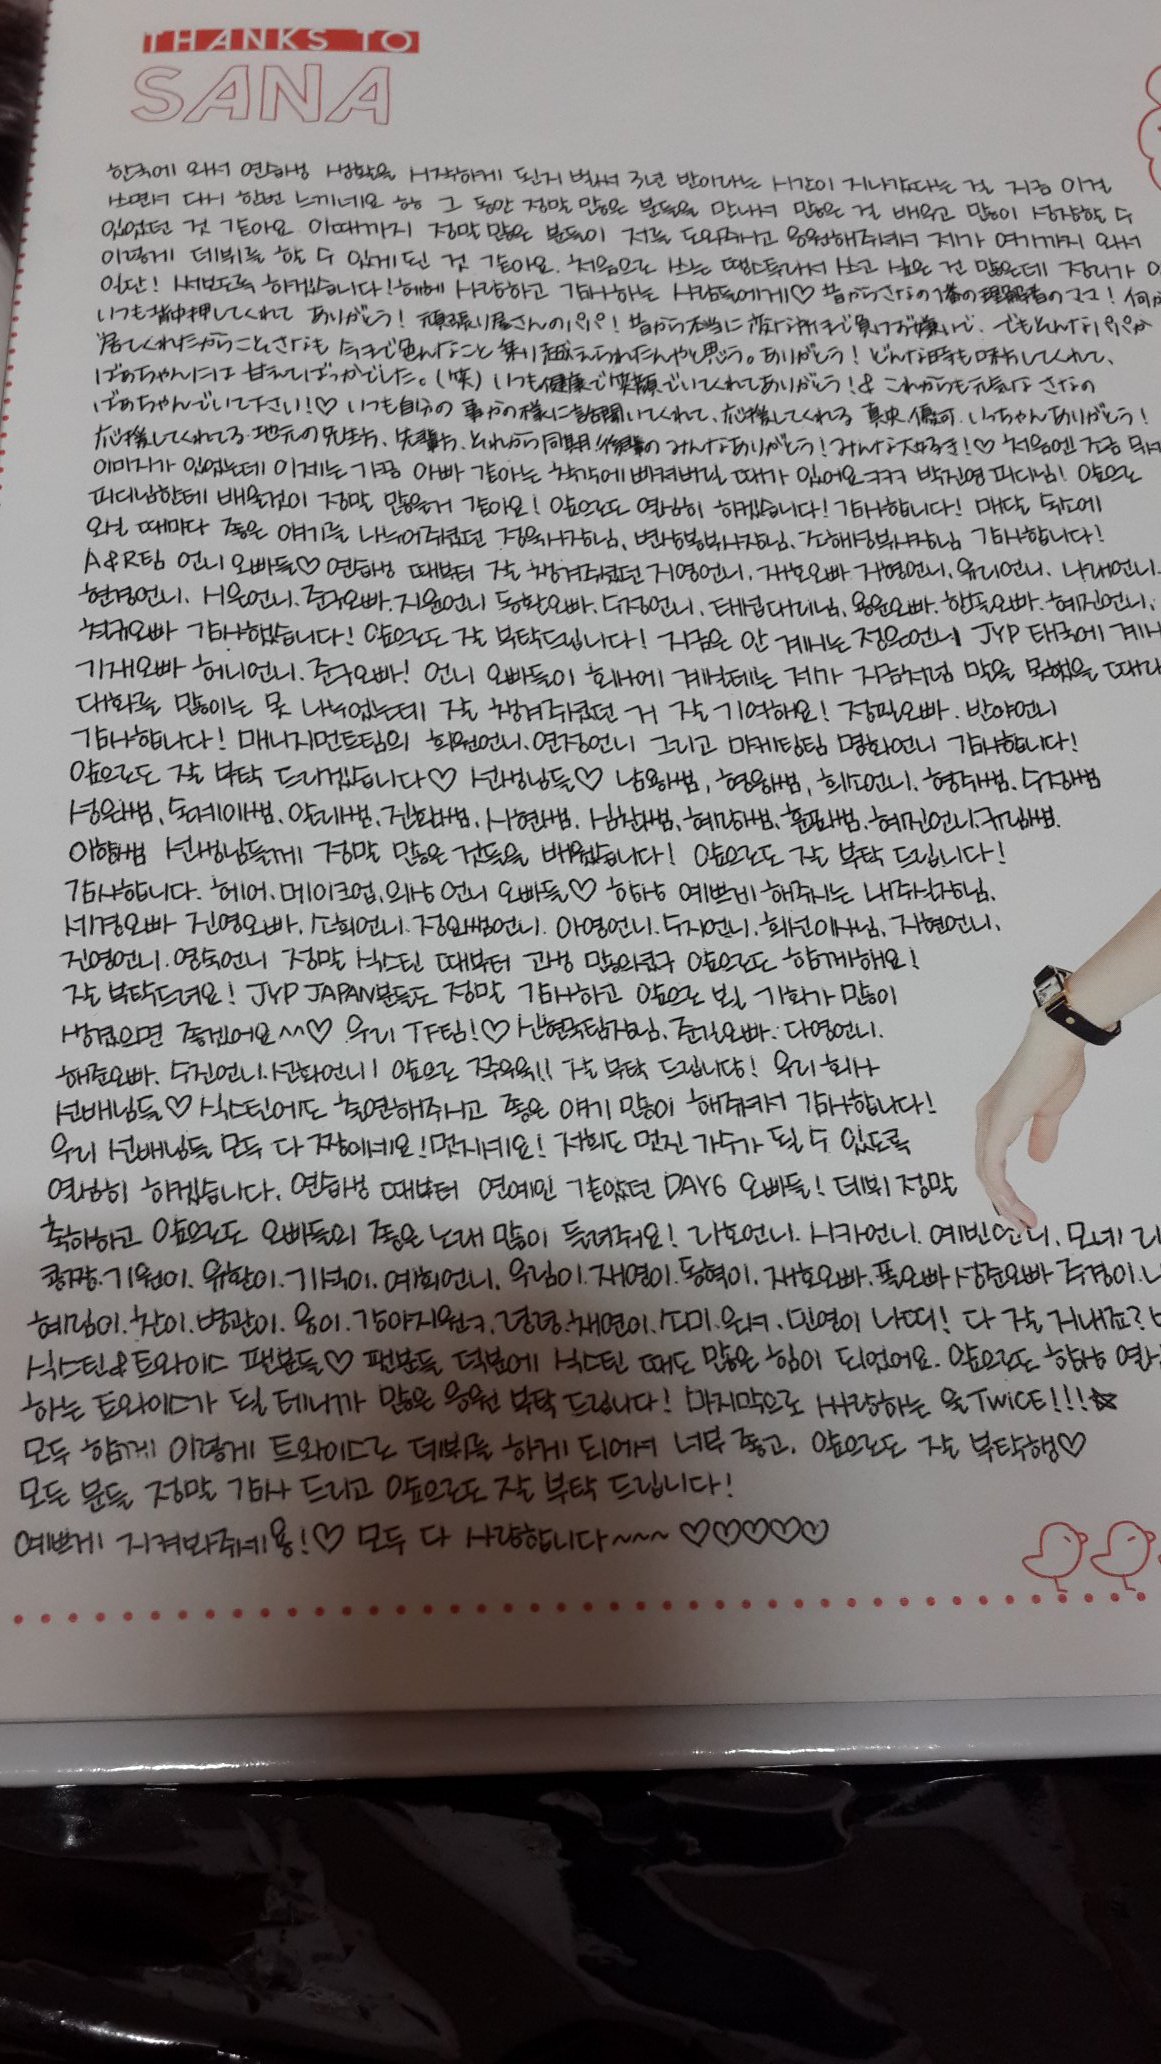 THANKS TO
SANA
한국에 와서 연습생 생활을 시작하게 된지 벌써 3년 반이라는 시간이 지나갔다는 걸 지금 이걸
쓰면서 다시 한번 느끼네요 그 동안 정말 많은 분들을 만나서 많은 걸 배우고 많이 성장할 수
있었던 것 같아요 이때까지 정말 많은 분들이 저를 도와주시고 응원해주셔서 제가 여기까지 와서
이렇게 데뷔를 할 수 있게 된 것 같아요. 처음으로 쓰는 땡스투라서 쓰고 싶은 건 많은데 정리가
일단! 써보도록 하겠습니다! 헤헤 사랑하고 감사하는 사람들에게♡ 昔からさなの1番の理解者のママ! 何か
いつも背中押してくれて ありがとう! 頑張り屋さんのパパ! 昔から本当に 負けず嫌いで、でもそんなパパが
居てくれたからこそ、さなも 今まで色んなこと 乗り越えられたんやと思う。ありがとう! どんな時も味方してくれて、
ばあちゃんには 甘えてばっかでした。(笑) いつも健康で笑顔でいてくれてありがとう!& これからも元気な さなの
ばあちゃんでいて下さい!♡ いつも自分の 事かの様に話聞いてくれて、応援してくれる 真央、優可、いっちゃんありがとう!
応援してくれてる 地元の先生方、先輩方、それから同期、後輩の みんなありがとう! みんな大好き!♡ 처음엔 조금 무서
이미지가 있었는데 이제는 가끔 아빠 같아는 착각에 빠져버릴 때가 있어요 ㅋㅋㅋ 박진영 피디님! 앞으로
피디님한테 배울것이 정말 많을거 같아요! 앞으로도 열심히 하겠습니다! 감사합니다! 매달 숙소에
오실 때마다 좋은 얘기를 나누어주셨던 정욱사장님, 변상봉부사장님, 조해성부사장님 감사합니다!
A&R팀 언니 오빠들♡ 연습생 때부터 잘 챙겨주셨던 지영언니, 재호오빠 지형언니, 유리언니, 나래언니.
현경언니. 시은언니. 준수오빠. 지윤언니 동환오빠. 수정언니. 태섭대리님, 용운오빠. 한솔오빠. 혜진언니,
오빠 감사했습니다! 앞으로도 잘 부탁드립니다! 지금은 안 계시는 정은언니 JYP 태국에 계시
기재오빠 허니언니. 준수오빠! 언니 오빠들이 회사에 계셨때는 제가 지금처럼 말을 못했을 때라
대화를 많이는 못 나누었는데 잘 챙겨주셨던 거 잘 기억해요! 장필오빠. 반야언니
감사합니다! 매니지먼트팀의 희원언니. 연정언니 그리고 마케팅팀 명화언니 감사합니다!
앞으로도 잘 부탁 드리겠습니다♡ 선생님들♡ 남용쌤, 형웅쌤, 희소언니. 형숙쌤. 수지쌤
성은쌤, 도레이쌤. 진환쌤, 시현쌤. 혜랑쌤. 훈필쌤. 혜진언니. 규님쌤.
이향쌤 선생님들께 정말 많은 것들을 배웠습니다! 앞으로도 잘 부탁 드립니다!
감사합니다. 헤어. 메이크업. 의상 언니 오빠들♡ 항상 예쁘비 해주시는 내주실장님.
세경오빠 진영오빠. 소희언니 정요쌤언니. 아영언니. 수지언니. 희선이사님, 지현언니,
진영언니. 영숙언니 정말 식스틴 때부터 고생 많으셨구 앞으로도 함께해요!
잘 부탁드려요! JYP JAPAN분들도 정말 감사하고 앞으로 뵐 기회가 많이
생겼으면 좋겠어요^^♡ 우리 TF팀!♡ 신현국팀장님. 준길오빠. 다영언니.
해준오빠. 수진언니. 선화언니! 앞으로 쭈우욱!! 잘 부탁 드립니당! 우리 회사
선배님들♡ 식스틴에도 출연해주시고 좋은 얘기 많이 해주셔서 감사합니다!
우리 선배님들 모두 다 짱이에요! 멋지세요! 저희도 멋진 가수가 될 수 있도록
열심히 하겠습니다. 연습생 때부터 연예인 같았던 DAY6 오빠들! 데뷔 정말
축하하고 앞으로도 오빠들의 좋은 노래 많이 들려줘요! 나희언니. 시카언니. 예빈언니. 모네
콩짱. 기원이. 유환이. 기석이. 예희언니. 우림이. 재영이. 동혁이. 재호오빠. 필오빠 성준오빠 주경이.
혜림이. 찬이. 병관이. 용이. 강아지원ㅋ. 경경. 채연이. 소미. 은서. 민영이 나띠! 다 잘 지내죠?
식스틴&트와이스 팬분들♡ 팬분들 덕분에 식스틴 때도 많은 힘이 되었어요. 앞으로도 항상 열심
하는 트와이스가 될 테니까 많은 응원 부탁 드립니다! 마지막으로 싸랑하는 울 TWICE!!!☆
모두 함께 이렇게 트와이스로 데뷔를 하게 되어서 너무 좋고, 앞으로도 잘 부탁행♡
모든 분들 정말 감사 드리고 앞으로도 잘 부탁 드립니다!
예쁘게 지켜봐주세용!♡ 모두 다 사랑합니다~~~ ♡♡♡♡♡